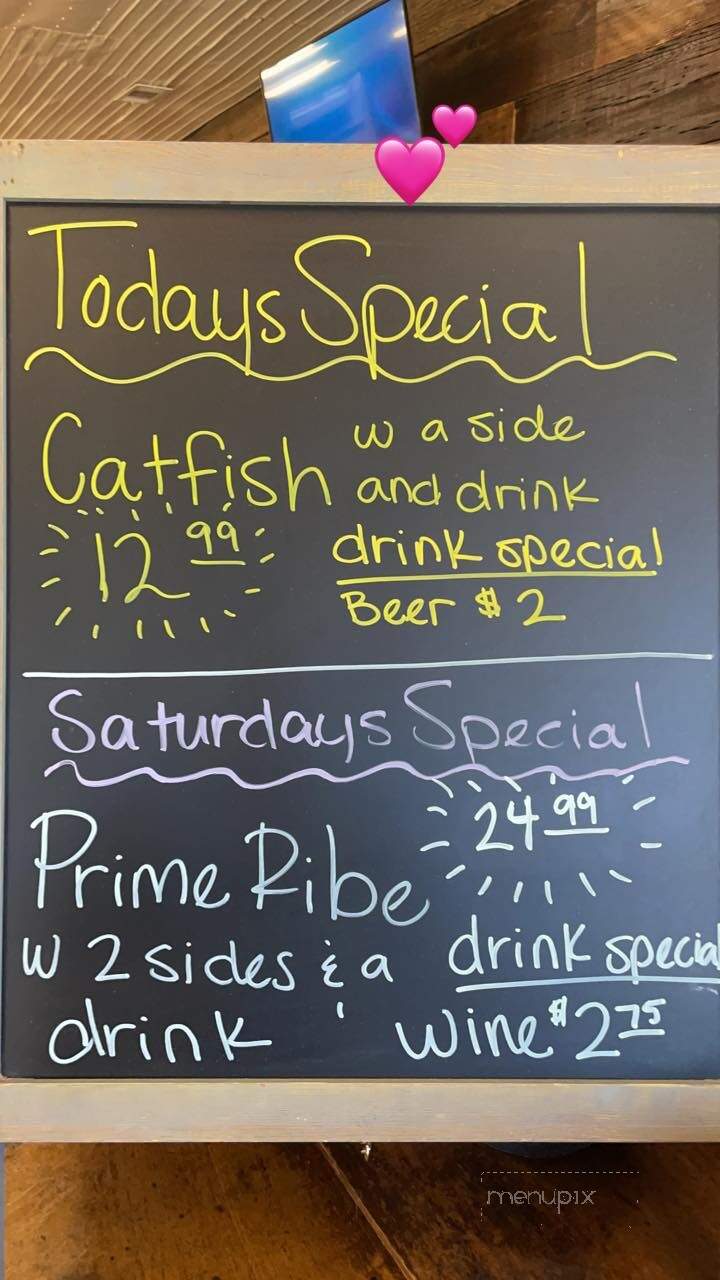 Todays Special
Catfish w a side
and drink
12 99
drink special
Beer $2
Saturdays Special
24 99
Prime Ribe
w 2 sides & a
drink
drink special
Wine $2 75
menupix